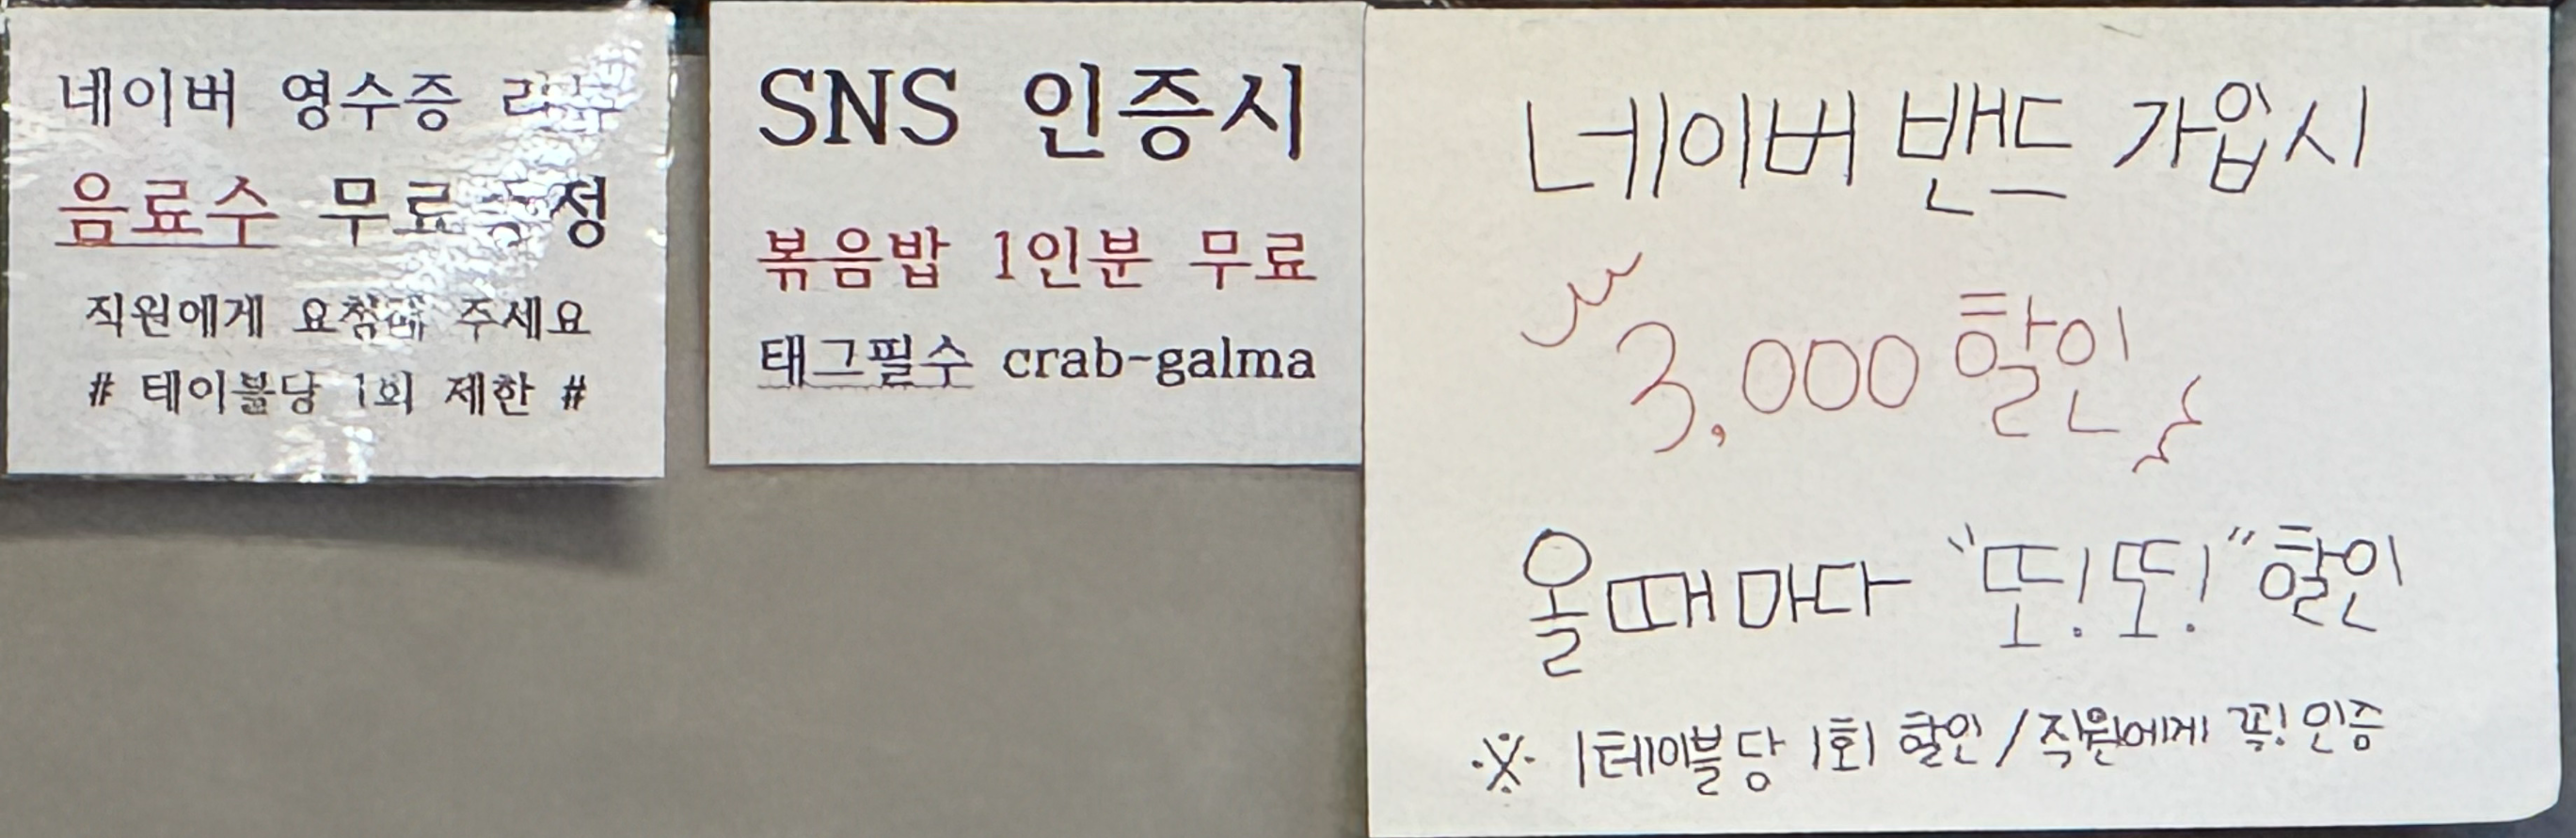 네이버 영수증 리뷰
음료수 무료증정
직원에게 요청해 주세요
# 테이블당 1회 제한 #
SNS 인증시
볶음밥 1인분 무료
태그필수 crab-galma
네이버 밴드 가입시
3,000 할인
올때마다 "또! 또!" 할인
※ 1테이블당 1회 할인 / 직원에게 꼭! 인증